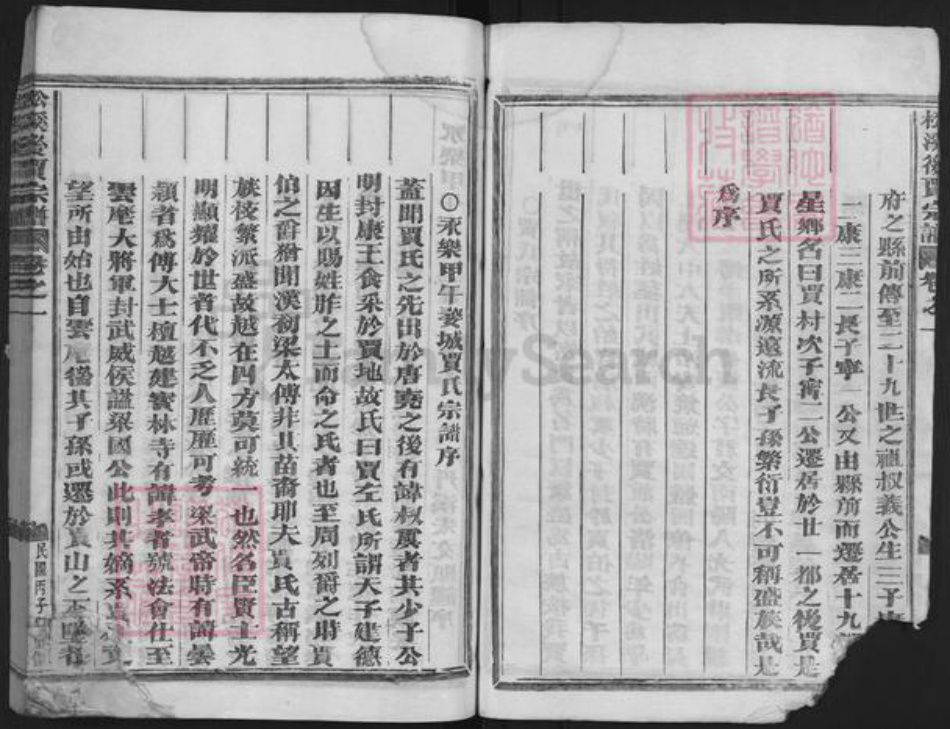 松溪後賈宗譜 卷之一
府之縣前傳至二十九世之祖叔義公生三子
二康三康二長子寧一公又由縣前而遷居十九
星鄉名曰賈村次子甯二公遷居於廿一都之後賈是
賈氏之所系源遠流長子孫繁衍豈不可稱盛族哉是
爲序
〇永樂甲午婺城賈氏宗譜序
蓋聞賈氏之先出於唐堯之後有諱叔虞者其少子公
明封康王食采於賈地故氏曰賈左氏所謂天子建德
因生以賜姓胙之土而命之氏者也至周列爵之時賈
伯之爵猶聞漢初梁太傅非其苗裔耶夫賈氏古稱望
族枝繁派盛故越在四方莫可統一也然名臣賢士光
明顯耀於世者代不乏人歷歷可考梁武帝時有諱曇
穎者爲傅大士檀越建寶林寺有諱孝者號法會仕至
雲麾大將軍封武威侯謚梁國公此則其嫡系
望所由始也自雲麾後其子孫或遷於賈山之
松溪後賈宗譜 卷之一
民國丙子
FamilySearch